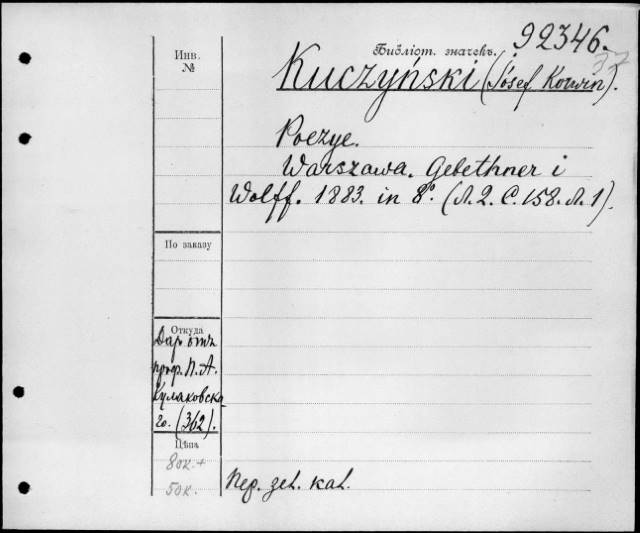 Инв.
№
Библіот. значекъ. 92346.
37
Kuczyński (Józef Korwin).
Poezye.
Warszawa. Gebethner i
Wolff. 1883. in 8º. (Л. 2. С. 158. Л. 1).
По заказу
Откуда
Дар отъ
проф. П. А.
Кулаковска
го. (362).
Цѣна
80к. +
50к.
Пер. деш. кал.